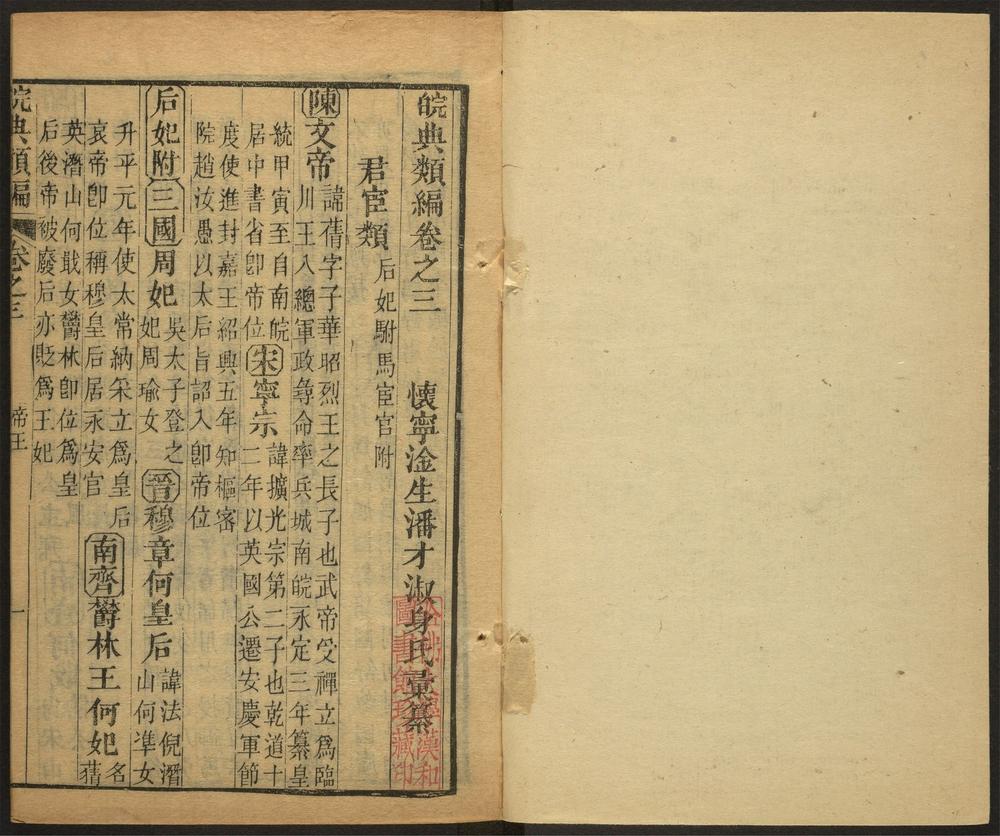 皖典類編卷之三 懷寧淦生潘才淑身氏彙纂
君宦類 后妃駙馬宦官附
陳文帝 諱蒨字子華昭烈王之長子也武帝受禪立爲臨
川王入總軍政尋命率兵城南皖永定三年纂皇
統甲寅至自南皖
居中書省卽帝位
宋寧宗 諱擴光宗第二子也乾道十
二年以英國公遷安慶軍節
度使進封嘉王紹興五年知樞密
院趙汝愚以太后旨詔入卽帝位
后妃附 三國周妃 吳太子登之
妃周瑜女
晉穆章何皇后 諱法倪潛
山何準女
升平元年使太常納采立爲皇后
哀帝卽位稱穆皇后居永安官
南齊鬱林王何妃 名
蒨
英潛山何戢女鬱林卽位爲皇
后後帝被廢后亦貶爲王妃
皖典類編 卷之三 帝王 一
哈佛大學漢和
圖書館珍藏印